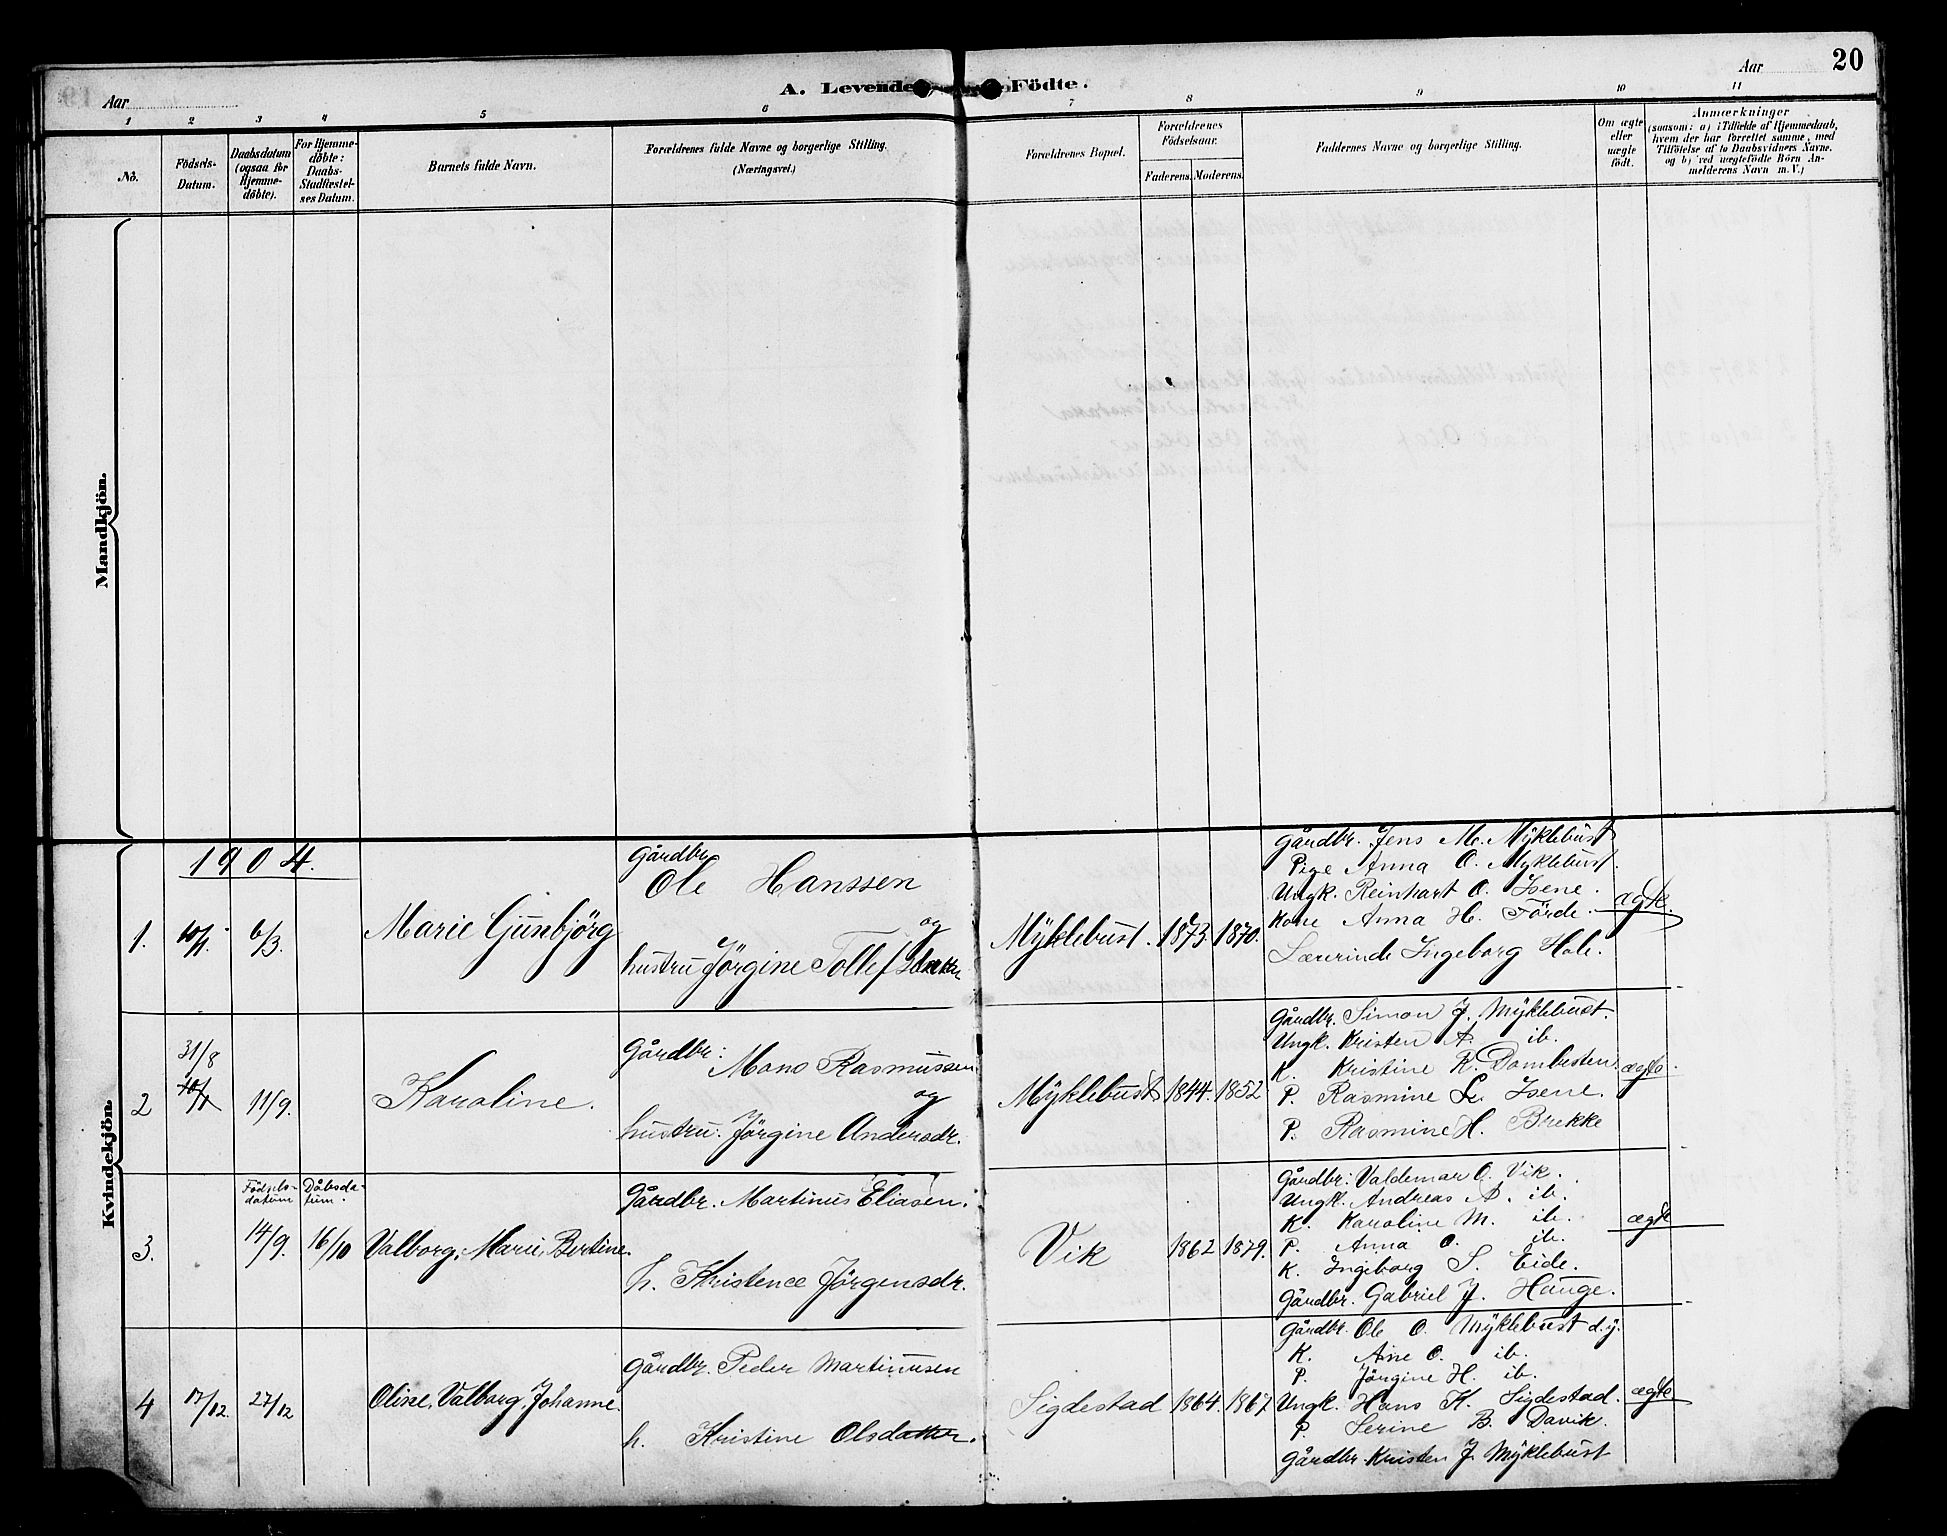 20
A. Levende Födte.
Aar
Aar
1 2 3 4 5 6 7 8 9 10 11
No.
Födsels-Datum.
Daabsdatum (ogsaa for Hjemme-döbte).
For Hjemme-döbte: Daabs-Stadfæstel-ses Datum.
Barnets fulde Navn.
Forældrenes fulde Navne og borgerlige Stilling.
(Næringsvei.)
Forældrenes Bopæl.
Forældrenes Födselsaar.
Faderens. Moderens.
Faddernes Navne og borgerlige Stilling.
Om ægte eller uægte födt.
Anmærkninger
(saasom: a) i Tilfælde af Hjemmedaab,
hvem der har forrettet samme, med
Tilföielse af to Daabsvidners Navne.
og b) ved uægtefödte Börn An-
melderens Navn m. V.)
Mandkjön.
Kvindekjön.
1904.
1. 10/1. 6/3. Marie Gunbjörg
Gårdbr.
Ole Hanssen
og
hustru Jörgine Tollefsdatter
Myklebust. 1873. 1870.
Gårdbr. Jens M. Myklebust
Pige Anna O. Myklebust.
Ungk. Reinhart O. Isene.
Kone Anna H. Förde.
Lærerinde Ingeborg Hole.
ægte.
2 31/8
10/1 11/9. Karoline.
Gårdbr: Mons Rasmussen
og
hustru: Jörgine Andersdr.
Myklebust 1844. 1852
Gårdbr. Simon J. Myklebust.
Ungk. Kristen A. ib.
K. Kristine K. Dombesten.
P. Rasmine L. Isene.
P. Rasmine H. Brekke
ægte.
3. Födsels-datum Dåbsda-tum.
14/9. 16/10 Valborg, Marie, Bertine.
Gårdbr. Martinus Eliasen.
h. Kristence Jörgensdr.
Vik 1862 1879.
Gårdbr: Valdemar O. Vik.
Ungk. Andreas A. ib.
K. Karoline M. ib.
P. Anna O. ib.
K. Ingeborg S. Eide.
Gårdbr. Gabriel J. Hauge.
ægte
4 17/12. 27/12 Oline, Valborg, Johanne.
Gårdbr. Peder Martinusen
h. Kristine Olsdatter.
Sigdestad 1864. 1867
Gårdbr. Ole O. Myklebust d.y.
K. Ane O. ib.
P. Jörgine H. ib.
Ungk. Hans K. Sigdestad.
P. Serine B. Davik.
Gårdbr. Kristen J. Myklebust
ægte